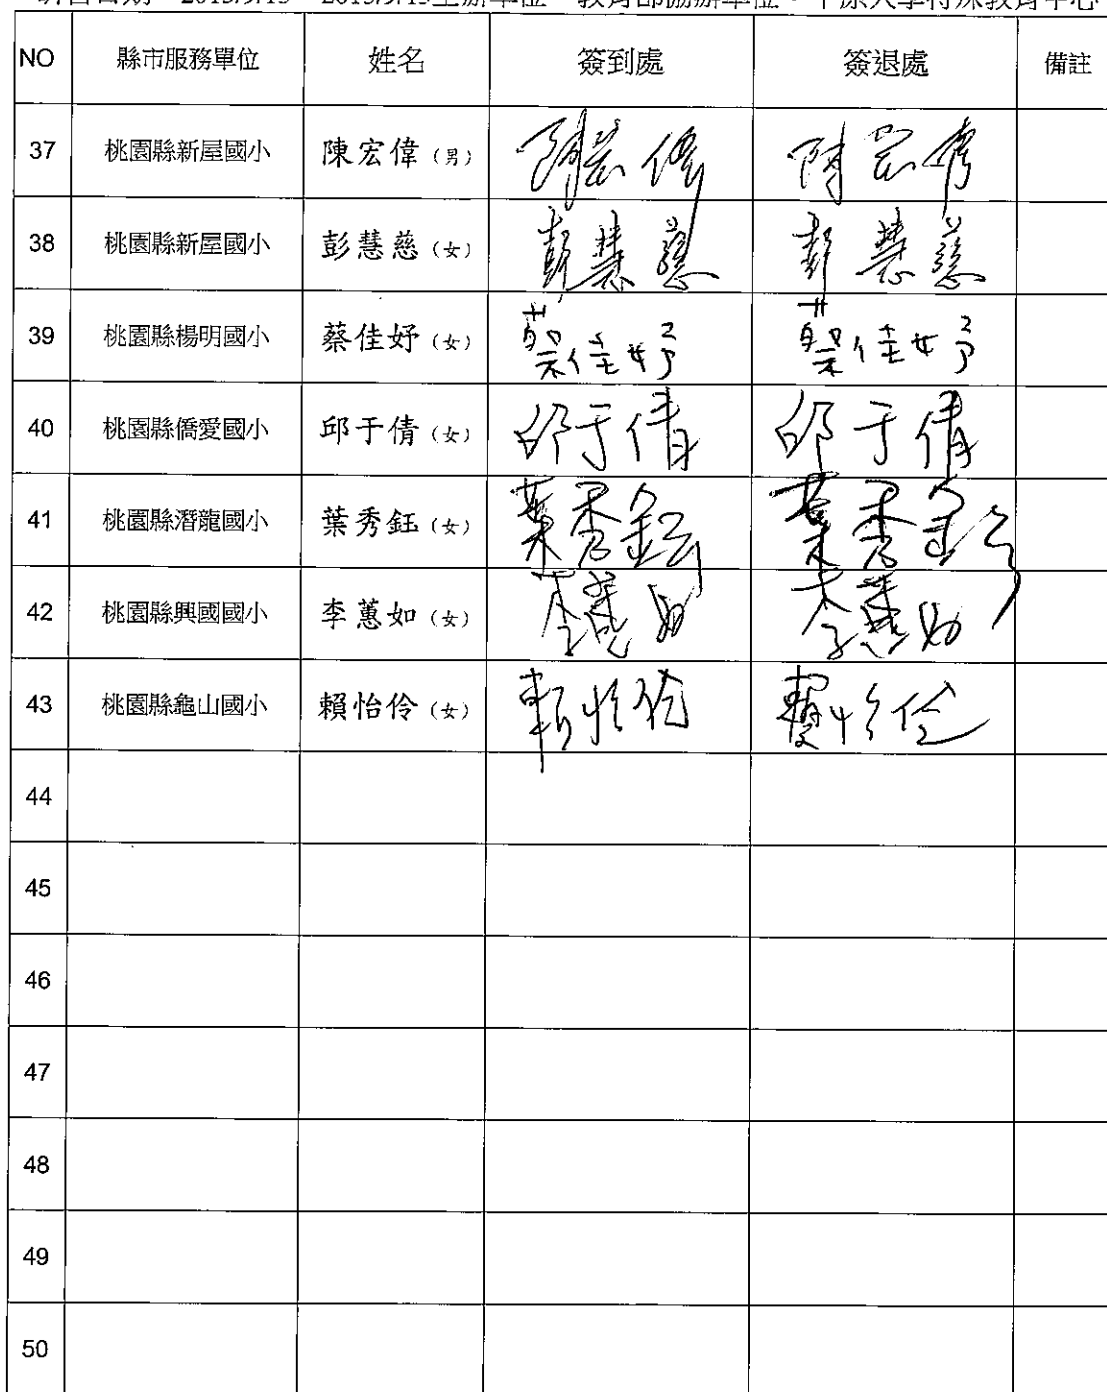 NO 縣市服務單位 姓名 簽到處 簽退處 備註
37 桃園縣新屋國小 陳宏偉(男) 陳宏偉 陳宏偉
38 桃園縣新屋國小 彭慧慈(女) 彭慧慈 彭慧慈
39 桃園縣楊明國小 蔡佳妤(女) 蔡佳妤 蔡佳妤
40 桃園縣僑愛國小 邱于倩(女) 邱于倩 邱于倩
41 桃園縣潛龍國小 葉秀鈺(女) 葉秀鈺 葉秀鈺
42 桃園縣興國國小 李蕙如(女) 李蕙如 李蕙如
43 桃園縣龜山國小 賴怡伶(女) 賴怡伶 賴怡伶
44
45
46
47
48
49
50